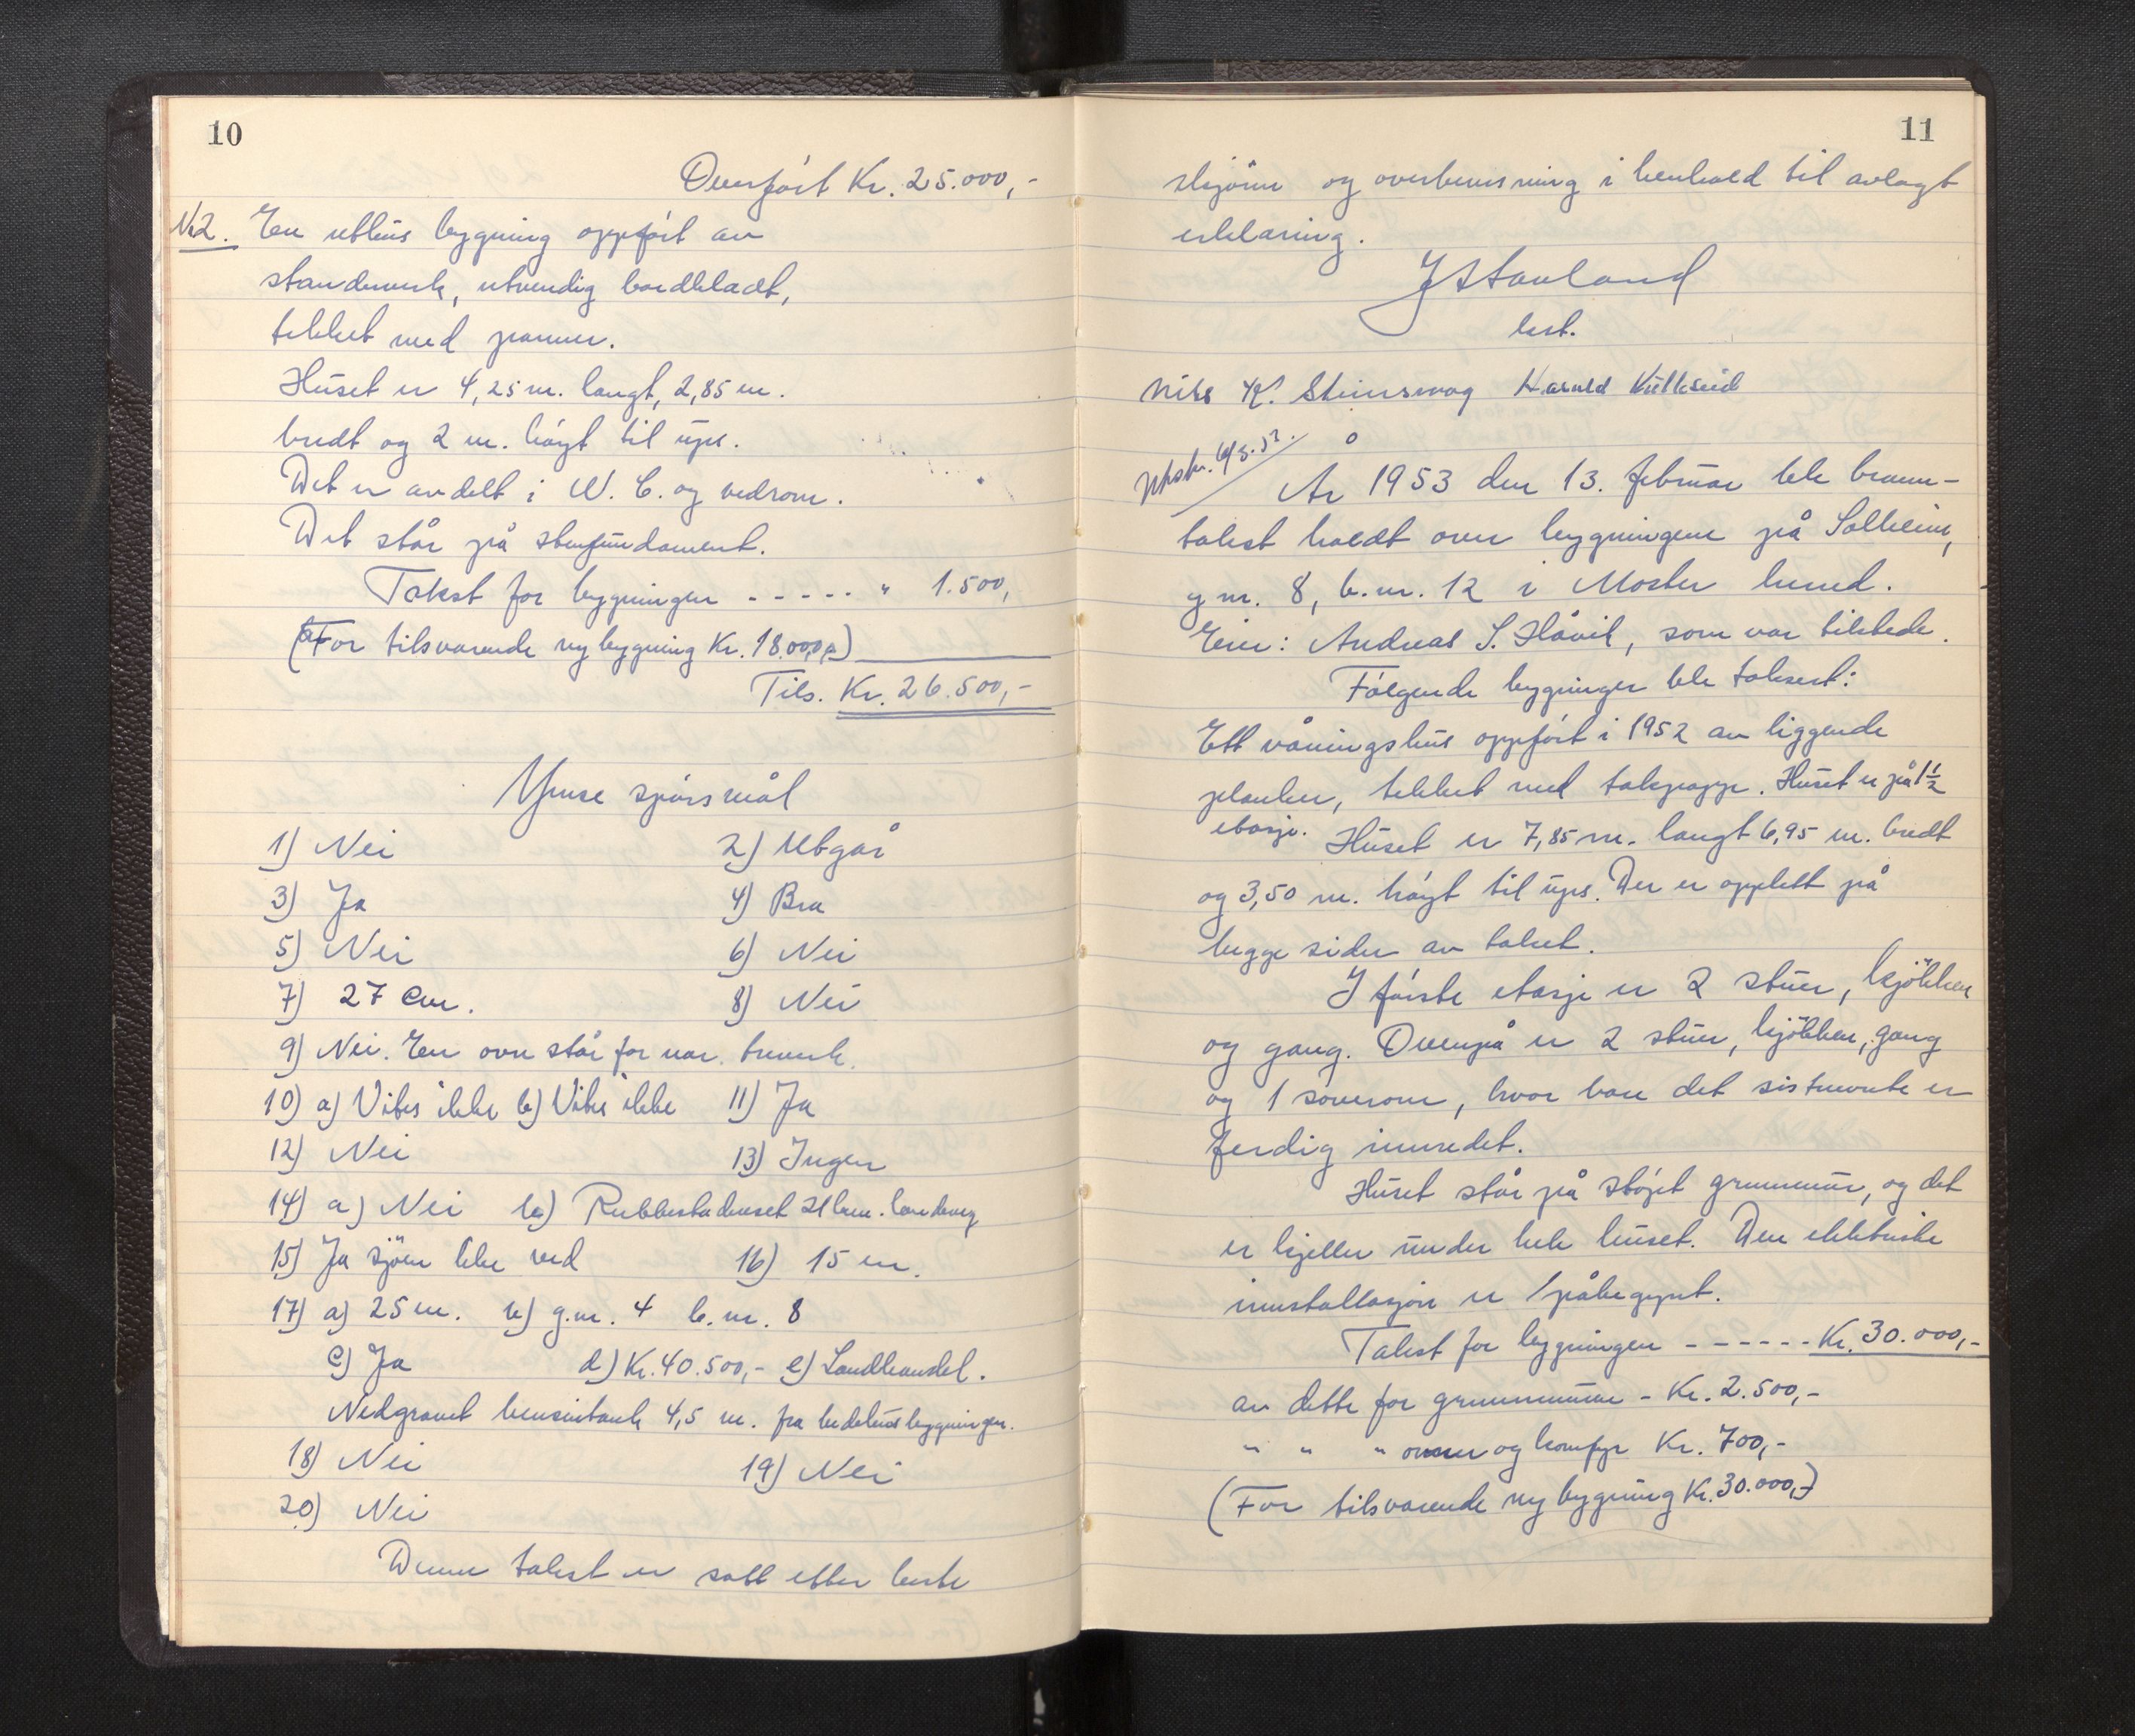 10
Overført Kr. 25.000,-
No2. En uthus bygning oppført av
standverk, utvendig bordkladt,
tekket med panner.
Huset er 4,25 m. langt, 2,85 m.
bredt og 2 m. høgt til ups.
Det er avdelt i W. C. og vedrom.
Det står på stenfundament.
Takst for bygningen - - - - - " 1.500,
(For tilsvarende ny bygning Kr. 18.000,-)
Tils. Kr. 26.500,-
Ymse spørsmål
1) Nei 2) Utgår
3) Ja 4) Bra
5) Nei 6) Nei
7) 27 cm. 8) Nei
9) Nei. En ovn står for nær treverk.
10) a) Vites ikke b) Vites ikke 11) Ja
12) Nei 13) Ingen
14) a) Nei b) Rubbestadneset 21 km. landveg
15) Ja sjöen like ved 16) 15 m.
17) a) 25 m. b) g.nr. 4 b.nr. 8
c) Ja d) Kr. 40.500,- e) Landhandel.
Nedgravet bensintank 4,5 m. fra bedehusbygningen.
18) Nei 19) Nei
20) Nei
Denne takst er satt etter beste
11
skjønn og overbevisning i henhold til avlagt
erklæring.
J Stavland
lest.
Nils K. Steinsvag Harald
Utskr. 6/3.53.
År 1953 den 13. februar ble brann-
takst holdt over bygningene på Solheim,
g nr. 8, b.nr. 12 i Moster herred.
Eier: Andreas S. Håvik, som var tilstede.
Følgende bygninger ble taksert:
Ett våningshus oppført i 1952 av liggende
planker, tekket med takpapp. Huset er på 1 1/2
etasje. Huset er 7,85 m. langt 6,95 m. bredt
og 3,50 m. høgt til ups. Der er opplett på
begge sider av taket.
I første etasje er 2 stuer, kjökken
og gang. Ovenpå er 2 stuer, kjökken, gang
og 1 soverom, hvor bare det sistnevnte er
ferdig innredet.
Huset står på støpt grunnmur, og det
er kjeller under hele huset. Den elektriske
innstallasjon er påbegynt.
Takst for bygningen - - - - - - Kr. 30.000,-
av dette for grunnmuren - Kr. 2.500,-
" " " ovner og komfyr Kr. 700,-
(For tilsvarende ny bygning Kr. 30.000,-)